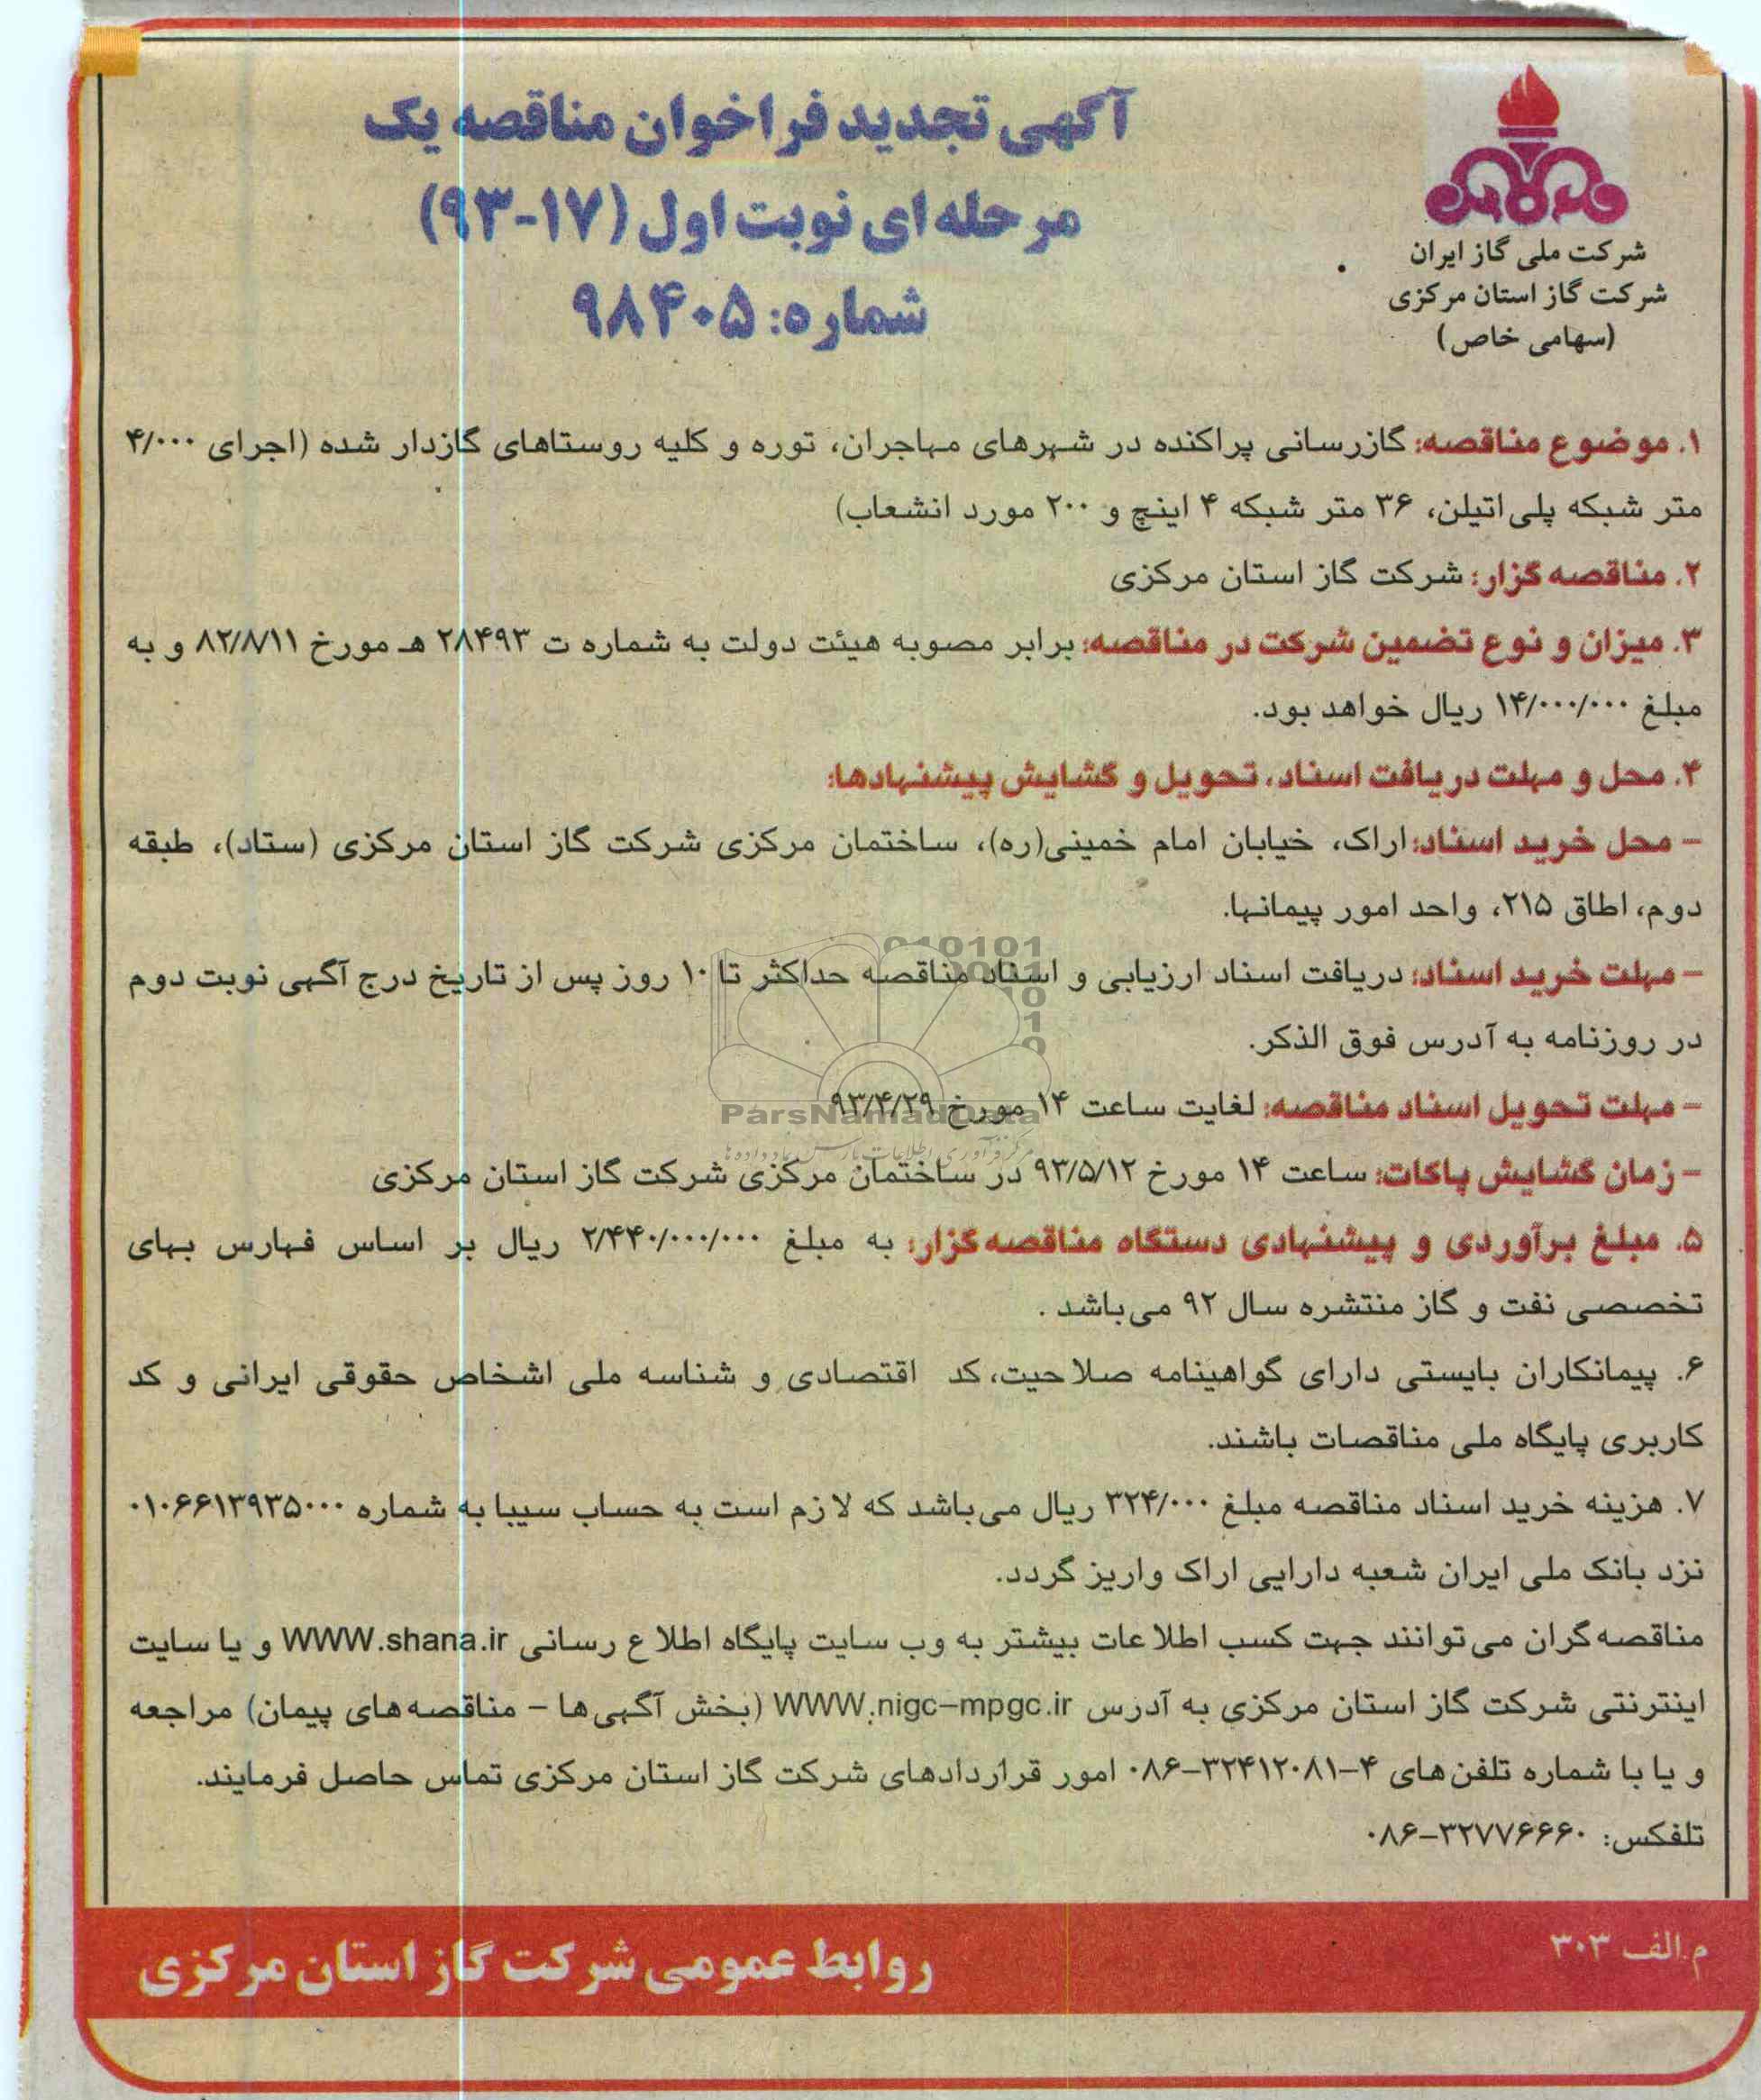 آگهی تجدید فراخوان مناقصه یک
مرحله ای نوبت اول (۱۷-۹۳)
شماره: ۹۸۴۰۵
شرکت ملی گاز ایران
شرکت گاز استان مرکزی
(سهامی خاص)
۱. موضوع مناقصه: گازرسانی پراکنده در شهرهای مهاجران، توره و کلیه روستاهای گازدار شده (اجرای ۴/۰۰۰
متر شبکه پلی اتیلن، ۳۶ متر شبکه ۴ اینچ و ۲۰۰ مورد انشعاب)
۲. مناقصه گزار: شرکت گاز استان مرکزی
۳. میزان و نوع تضمین شرکت در مناقصه: برابر مصوبه هیئت دولت به شماره ت ۲۸۴۹۳ هـ مورخ ۸۲/۸/۱۱ و به
مبلغ ۱۴/۰۰۰/۰۰۰ ریال خواهد بود.
۴. محل و مهلت دریافت اسناد، تحویل و گشایش پیشنهادها:
- محل خرید اسناد: اراک، خیابان امام خمینی(ره)، ساختمان مرکزی شرکت گاز استان مرکزی (ستاد)، طبقه
دوم، اطاق ۲۱۵، واحد امور پیمانها.
- مهلت خرید اسناد: دریافت اسناد ارزیابی و اسناد مناقصه حداکثر تا ۱۰ روز پس از تاریخ درج آگهی نوبت دوم
در روزنامه به آدرس فوق الذکر.
- مهلت تحویل اسناد مناقصه: لغایت ساعت ۱۴ مورخ ۹۳/۴/۲۹
ParsNamadData
- زمان گشایش پاکات: ساعت ۱۴ مورخ ۹۳/۵/۱۲ در ساختمان مرکزی شرکت گاز استان مرکزی
۵. مبلغ برآوردی و پیشنهادی دستگاه مناقصه گزار: به مبلغ ۲/۴۴۰/۰۰۰/۰۰۰ ریال بر اساس فهارس بهای
تخصصی نفت و گاز منتشره سال ۹۲ می باشد .
۶. پیمانکاران بایستی دارای گواهینامه صلاحیت، کد اقتصادی و شناسه ملی اشخاص حقوقی ایرانی و کد
کاربری پایگاه ملی مناقصات باشند.
۷. هزینه خرید اسناد مناقصه مبلغ ۳۲۴/۰۰۰ ریال می باشد که لازم است به حساب سیبا به شماره ۰۱۰۶۶۱۳۹۳۵۰۰۰
نزد بانک ملی ایران شعبه دارایی اراک واریز گردد.
مناقصه گران می توانند جهت کسب اطلاعات بیشتر به وب سایت پایگاه اطلاع رسانی WWW.shana.ir و یا سایت
اینترنتی شرکت گاز استان مرکزی به آدرس WWW.nigc-mpgc.ir (بخش آگهی ها - مناقصه های پیمان) مراجعه
و یا با شماره تلفن های ۴-۳۲۴۱۲۰۸۱-۰۸۶ امور قراردادهای شرکت گاز استان مرکزی تماس حاصل فرمایند.
تلفکس: ۳۲۷۷۶۶۶۰-۰۸۶
م.الف ۳۰۳
روابط عمومی شرکت گاز استان مرکزی